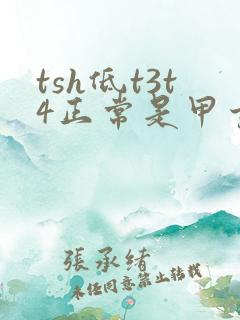 tsh低,t3t
4正常是甲
張承緒
未经同意禁止转载